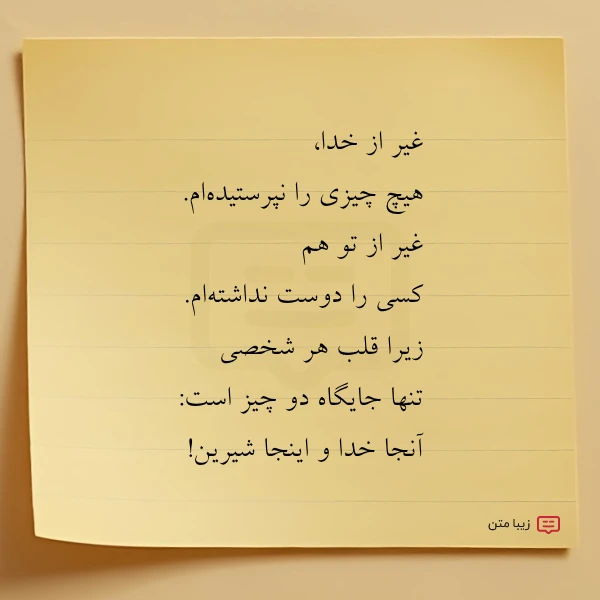 غیر از خدا،
هیچ چیزی را نپرستیده‌ام.
غیر از تو هم
کسی را دوست نداشته‌ام.
زیرا قلب هر شخصی
تنها جایگاه دو چیز است:
آنجا خدا و اینجا شیرین!
زیبا متن